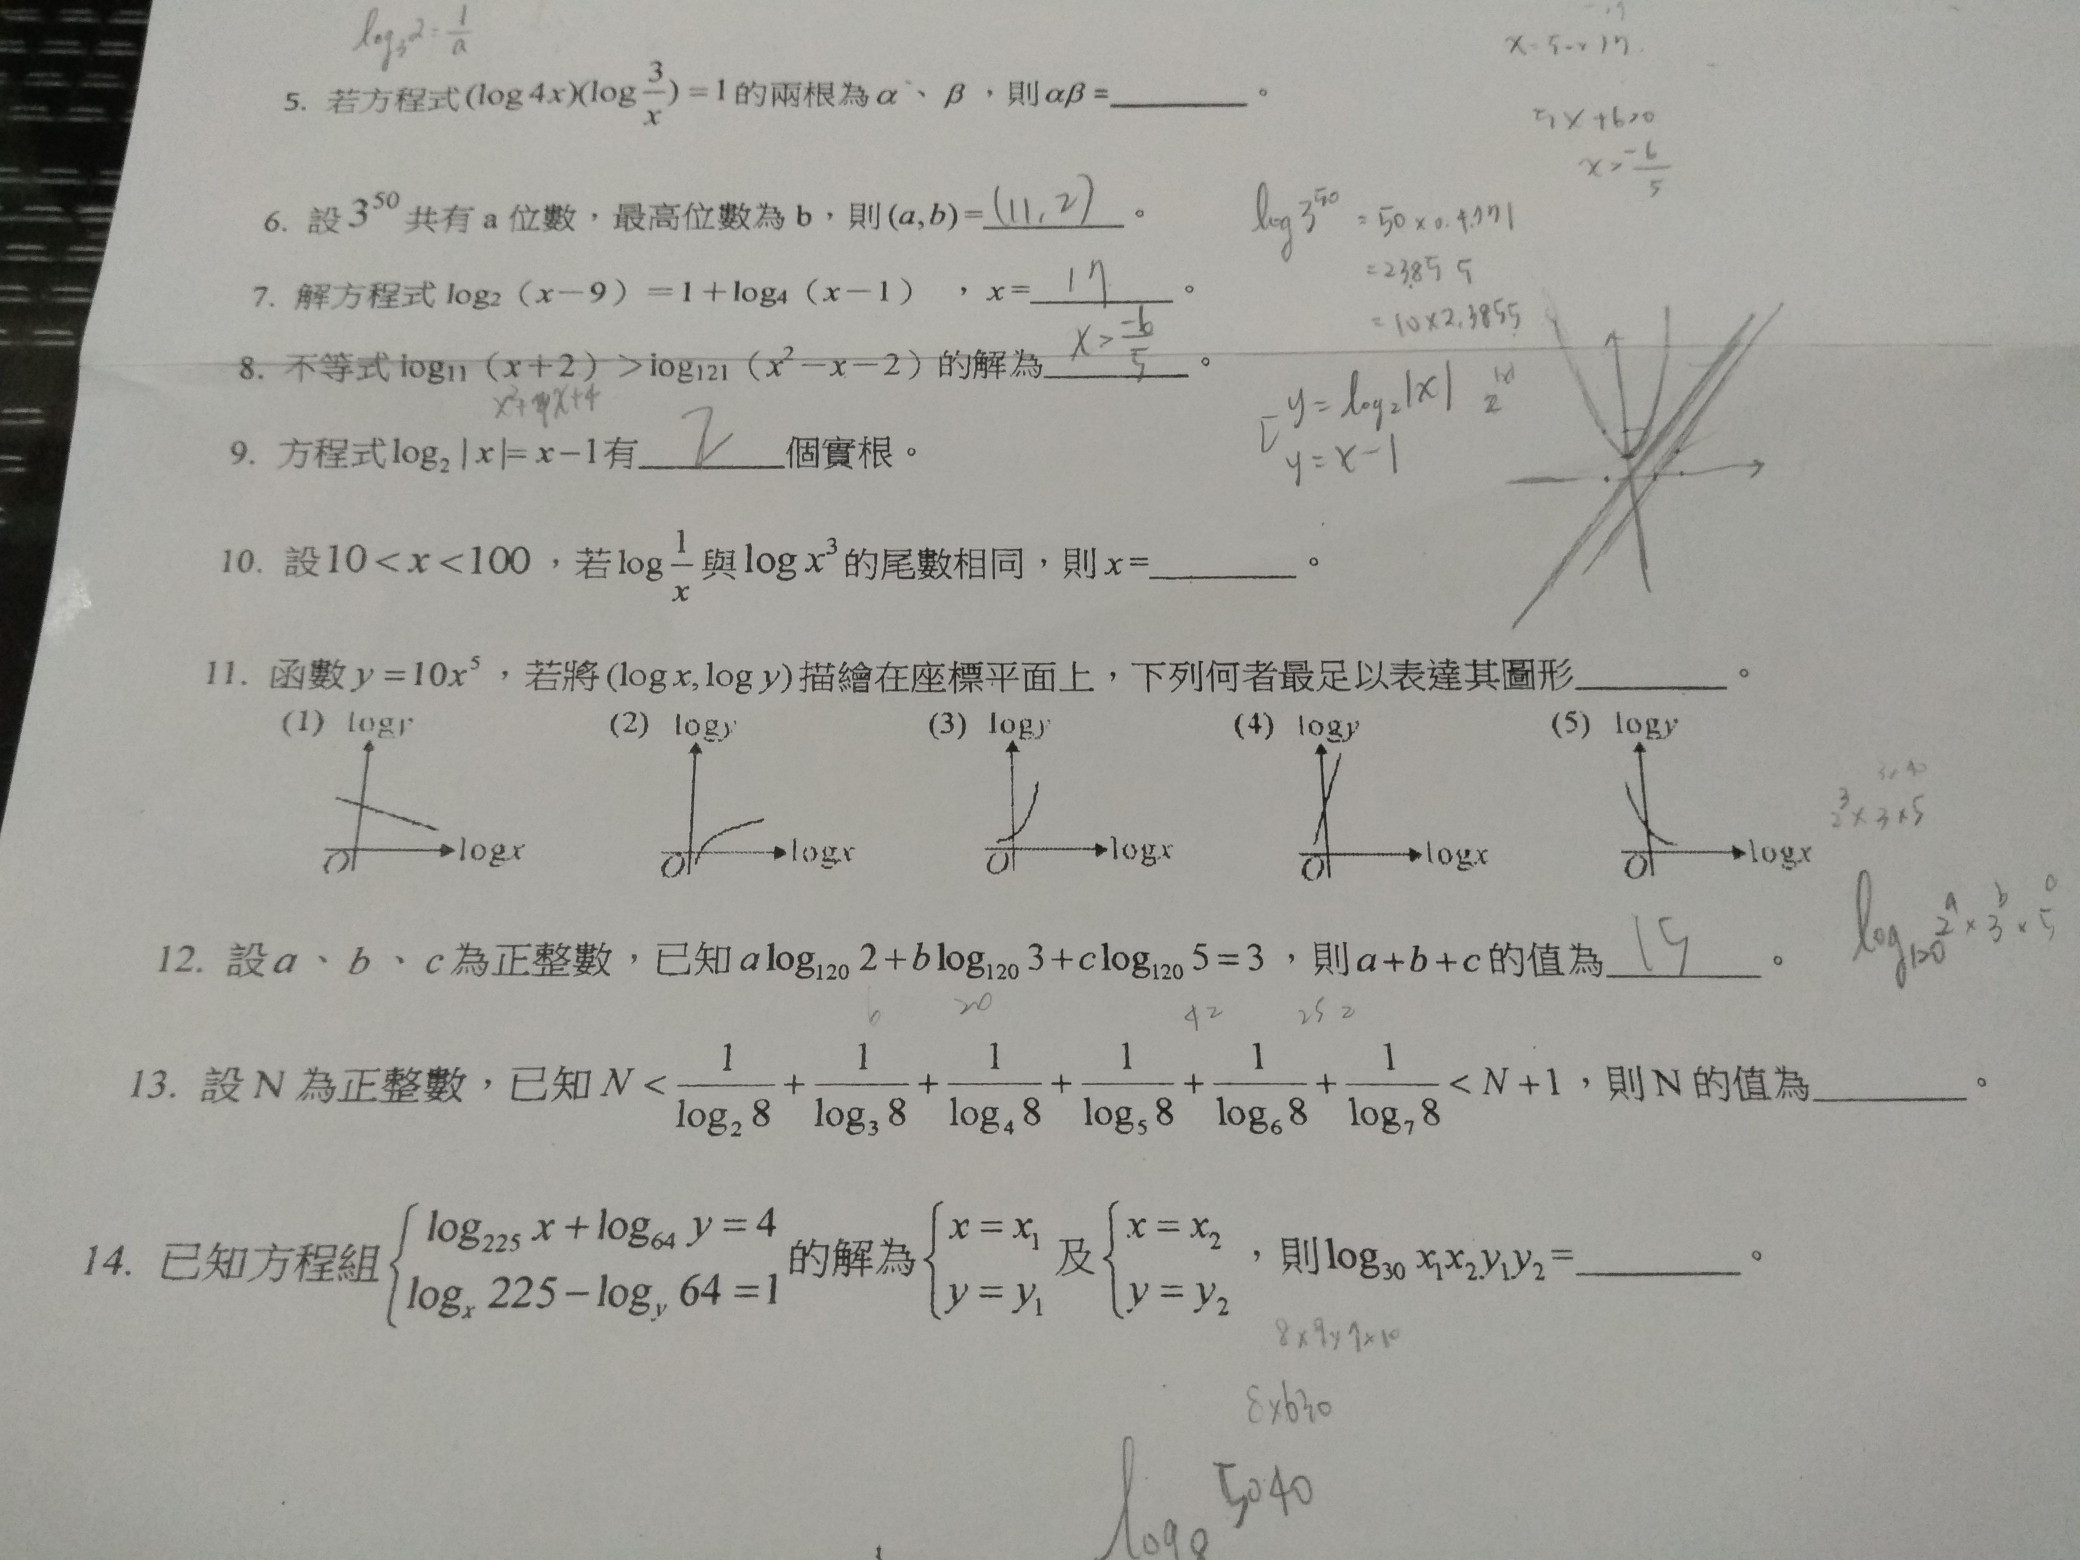 log₃2 = 1/a
x = 5 or 17
5. 若方程式(log 4x)(log 3/x) = 1的兩根為α、β，則αβ=________。
5x+6>0
x > -6/5
6. 設3⁵⁰共有 a 位數，最高位數為 b，則(a,b)=(11, 2)。
log 3⁵⁰ = 50 × 0.4771
= 23.85 5
= 10 × 2.3855
7. 解方程式 log₂（x−9）=1+log₄（x−1），x=17。
8. 不等式 log₁₁（x+2）>log₁₂₁（x²−x−2）的解為 x > -6/5。
x²+4x+4
y = log₂|x|
y = x-1
9. 方程式log₂|x|= x−1有 2 個實根。
10. 設10<x<100，若log 1/x 與log x³的尾數相同，則x=________。
11. 函數y=10x⁵，若將(log x, log y)描繪在座標平面上，下列何者最足以表達其圖形________。
(1) logy (2) logy (3) logy (4) logy (5) logy
O logx O logx O logx O logx O logx
2³×3×5
12. 設a、b、c為正整數，已知a log₁₂₀ 2+b log₁₂₀ 3+c log₁₂₀ 5=3，則a+b+c的值為 15。
log₁₂₀ 2ᵃ × 3ᵇ × 5ᶜ
6 20 42 252
13. 設 N 為正整數，已知 N < 1/log₂ 8 + 1/log₃ 8 + 1/log₄ 8 + 1/log₅ 8 + 1/log₆ 8 + 1/log₇ 8 < N +1，則 N 的值為________。
14. 已知方程組{log₂₂₅ x + log₆₄ y = 4
logₓ 225 − log_y 64 = 1 的解為{x = x₁
y = y₁ 及{x = x₂
y = y₂，則log₃₀ x₁x₂y₁y₂=________。
8×9×7×10
8×630
log₈ 5040